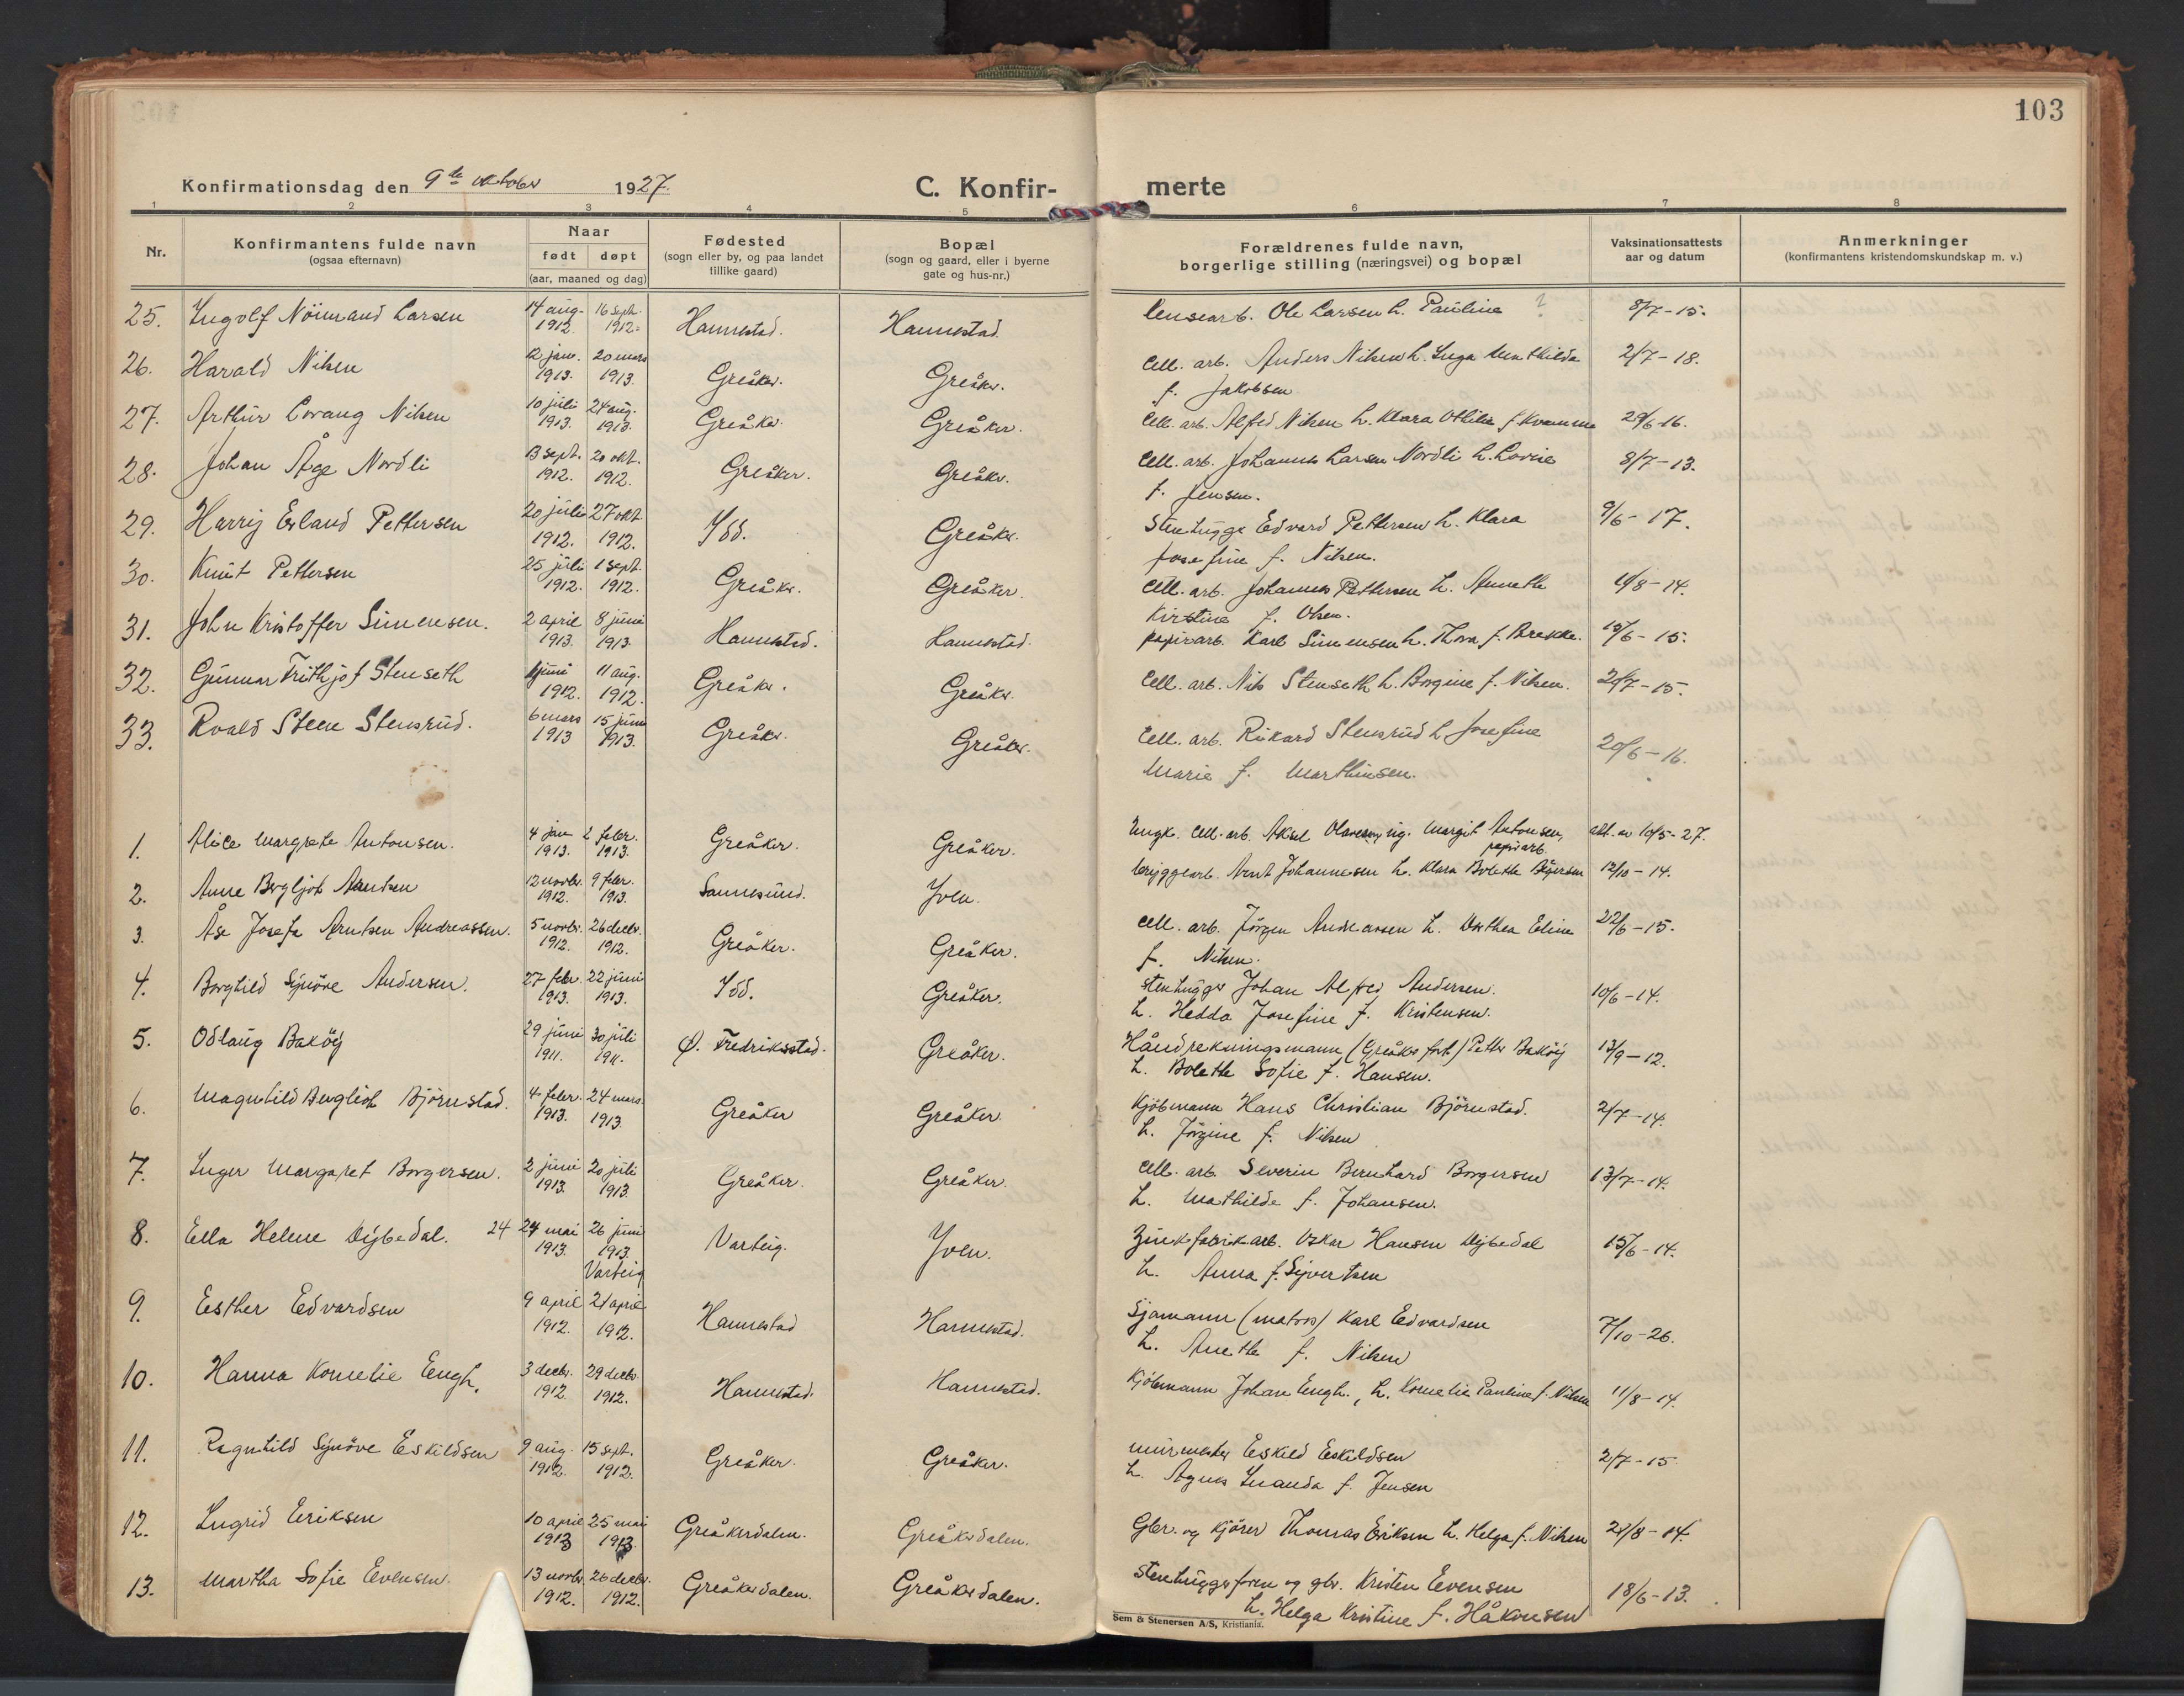 103
Konfirmationsdag den 9de oktober 1927. C. Konfir- merte
1 2 3 4 5 6 7 8
Nr. Konfirmantens fulde navn (ogsaa efternavn) Naar født døpt (aar, maaned og dag) Fødested (sogn eller by, og paa landet tillike gaard) Bopæl (sogn og gaard, eller i byerne gate og hus-nr.) Forældrenes fulde navn, borgerlige stilling (næringsvei) og bopæl Vaksinationsattests aar og datum Anmerkninger (konfirmantens kristendomskundskap m. v.)
25. Ingolf Nörmand Larsen 14 aug. 1912. 16 sept. 1912. Hannestad. Hannestad. lensearb. Ole Larsen h. Pauline ? 8/7-15.
26. Harald Nilsen 12 jan. 1913. 20 mars 1913. Greåker. Greåker. Cell. arb. Anders Nilsen h. Inga Mathilda 2/7-18.
f. Jakobsen
27. Arthur Lorang Nilsen 10 juli 1913. 24 aug. 1913. Greåker. Greåker. Cell. arb. Alfred Nilsen h. Klara Othilie f. Kvamme 29/6-16.
28. Johan Åge Nordli 13 sept. 1912. 20 okt. 1912. Greåker. Greåker. Cell. arb. Johannes Larsen Nordli h. Lovise 8/7-13.
f. Jensen.
29. Harry Erland Pettersen 20 juli 1912. 27 okt. 1912. Idd. Greåker. Stenhugger Edvard Pettersen h. Klara 9/6-17.
Josefine f. Nilsen.
30. Knut Pettersen 25 juli 1912. 1 sept. 1912. Greåker. Greåker. Cell. arb. Johannes Pettersen h. Annette 4/8-14.
Kirstine f. Olsen.
31. John Kristoffer Simensen. 2 april 1913. 8 juni 1913. Hannestad. Hannestad. papirarb. Karl Simensen h. Thora f. Brekke. 15/6-15.
32. Gunnar Frithjof Stenseth juni 1912. 11 aug. 1912. Greåker. Greåker. Cell. arb. Nils Stenseth h. Borgine f. Nilsen. 20/7-15.
33. Roald Steen Stensrud. 6 mars 1913 15 juni 1913. Greåker. Greåker. Cell. arb. Rikard Stensrud h. Josefine 20/6-16.
Marie f. Marthinsen.
1. Alice Margrete Antonsen. 4 jan 1913. 2 febr. 1913. Greåker. Greåker. Ungk. cell. arb. Aksel Olavesen, ug. Margit Antonsen, papirarb. att. av 10/5-27.
2. Anne Bergljot Arntsen 12 novbr. 1912. 9 febr. 1913. Sannesund. Yven. bryggearb. Arnt Johannesen h. Klara Bolette Børjesen 12/10-14.
3. Åse Josefa Arntsen Andreassen. 5 novbr. 1912. 26 decbr. 1912. Greåker. Greåker. cell. arb. Jörgen Andreassen h. Dorthea Eline 22/6-15.
f. Nilsen.
4. Borghild Synöve Andersen. 27 febr. 1913. 22 juni 1913. Idd. Greåker. stenhugger Johan Alfred Andersen. 10/6-14.
h. Hedda Josefine f. Kristensen.
5. Odlaug Baköy 29 juni 1911. 30 juli 1911. Ø. Fredrikstad. Greåker. Håndrekningsmann (Greåker fort) Petter Baköy 13/9-12.
h. Bolette Sofie f. Hansen.
6. Magnhild Bergliot Björnstad. 4 febr. 1913. 24 mars. 1913. Greåker Greåker. Kjöbmann Hans Christian Björnstad. 2/7-14.
h. Jörgine f. Nilsen
7. Inger Margaret Borgersen. 2 juni 1913. 20 juli 1913. Greåker. Greåker. Cell. arb. Severin Bernhard Borgersen 13/7-14.
h. Mathilde f. Johansen.
8. Ella Helene Dybedal. 24 24 mai 1913. 26 juni 1913. Varteig Varteig. Yven. Zinkfabrikarb. Oskar Hansen Dybedal 15/6-14.
h. Anna f. Syvertsen
9. Esther Edvardsen 9 april 1912. 21 april 1912. Hannestad Hannestad. Sjømann (matros) Karl Edvardsen 7/10-26.
h. Anette f. Nilsen
10. Hanna Kornelie Engh. 3 decbr. 1912. 29 decbr. 1912. Hannestad. Hannestad. Kjöbmann Johan Engh., h. Kornelia Pauline f. Nilsen 11/8-14.
11. Ragnhild Synöve Eskildsen 9 aug. 1912. 15 sept. 1912. Greåker. Greåker. murmester Eskild Eskildsen 2/7-15.
h. Agnes Inanda f. Jensen
12. Ingrid Eriksen 10 april 1913 25 mai 1913. Greåkerdalen. Greåkerdalen. Gbr. og kjörer Thomas Eriksen h. Helga f. Nilsen 21/8-14.
13. Martha Sofie Evensen. 13 novbr. 1912. 26 decbr. 1912. Greåkerdalen. Greåkerdalen. Stenhuggerform og gbr. Kristen Evensen 18/6-13.
h. Helga Kristine f. Håkonsen
Sem & Stenersen A/S, Kristiania.